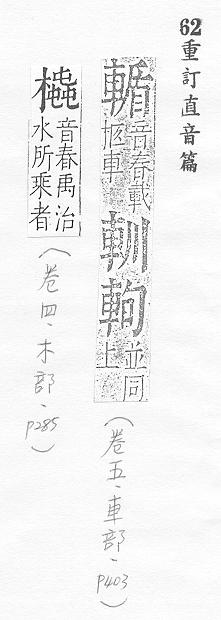 62 重訂直音篇
輴 音春載柩車
並同上
（卷五、車部、p403）
音春禹治水所乘者
（卷四、木部、p285）